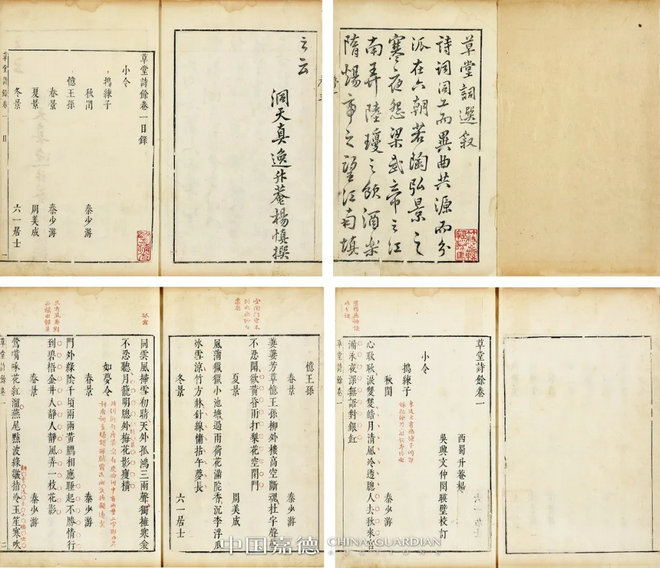 草堂詞選叙
詩詞同工而異曲共源而分
派在六朝若陶弘景之
寒夜怨梁武帝之江
南弄陸瓊之飲酒樂
隋煬帝之望江南填
之云
洞天真逸升菴楊慎撰
草堂詩餘卷一目錄
小令
搗練子
秋閨 秦少游
憶王孫
春景 秦少游
夏景 周美成
冬景 六一居士
草堂詩餘卷一 目 一
草堂詩餘卷一
西蜀升菴楊
吳興文仲閔暎璧校訂
小令
搗練子
秋閨 秦少游
心耿耿淚雙雙皓月清風冷透牕人去秋來宮
漏永夜深無語對銀釭
草堂詩餘卷一 一
憶王孫
春景 秦少游
萋萋芳草憶王孫柳外樓高空斷魂杜宇聲聲
不忍聞欲黃昏雨打棃花空閉門
夏景 周美成
風蒲獵獵小池塘過雨荷花滿院香沉李浮瓜
冰雪涼竹方牀針線慵拈午夢長
冬景 六一居士
同雲風掃雪初晴天外孤鴻三兩聲獨擁寒衾
不忍聽月籠明牕外梅花影瘦橫
如夢令
春景 秦少游
門外綠陰千頃兩兩黃鸝相應睡起不勝情行
到碧梧金井人靜人靜風弄一枝花影
春景 秦少游
鶯嘴啄花紅溜燕尾點波綠皺指冷玉笙寒吹
中国嘉德 CHINA GUARDIAN